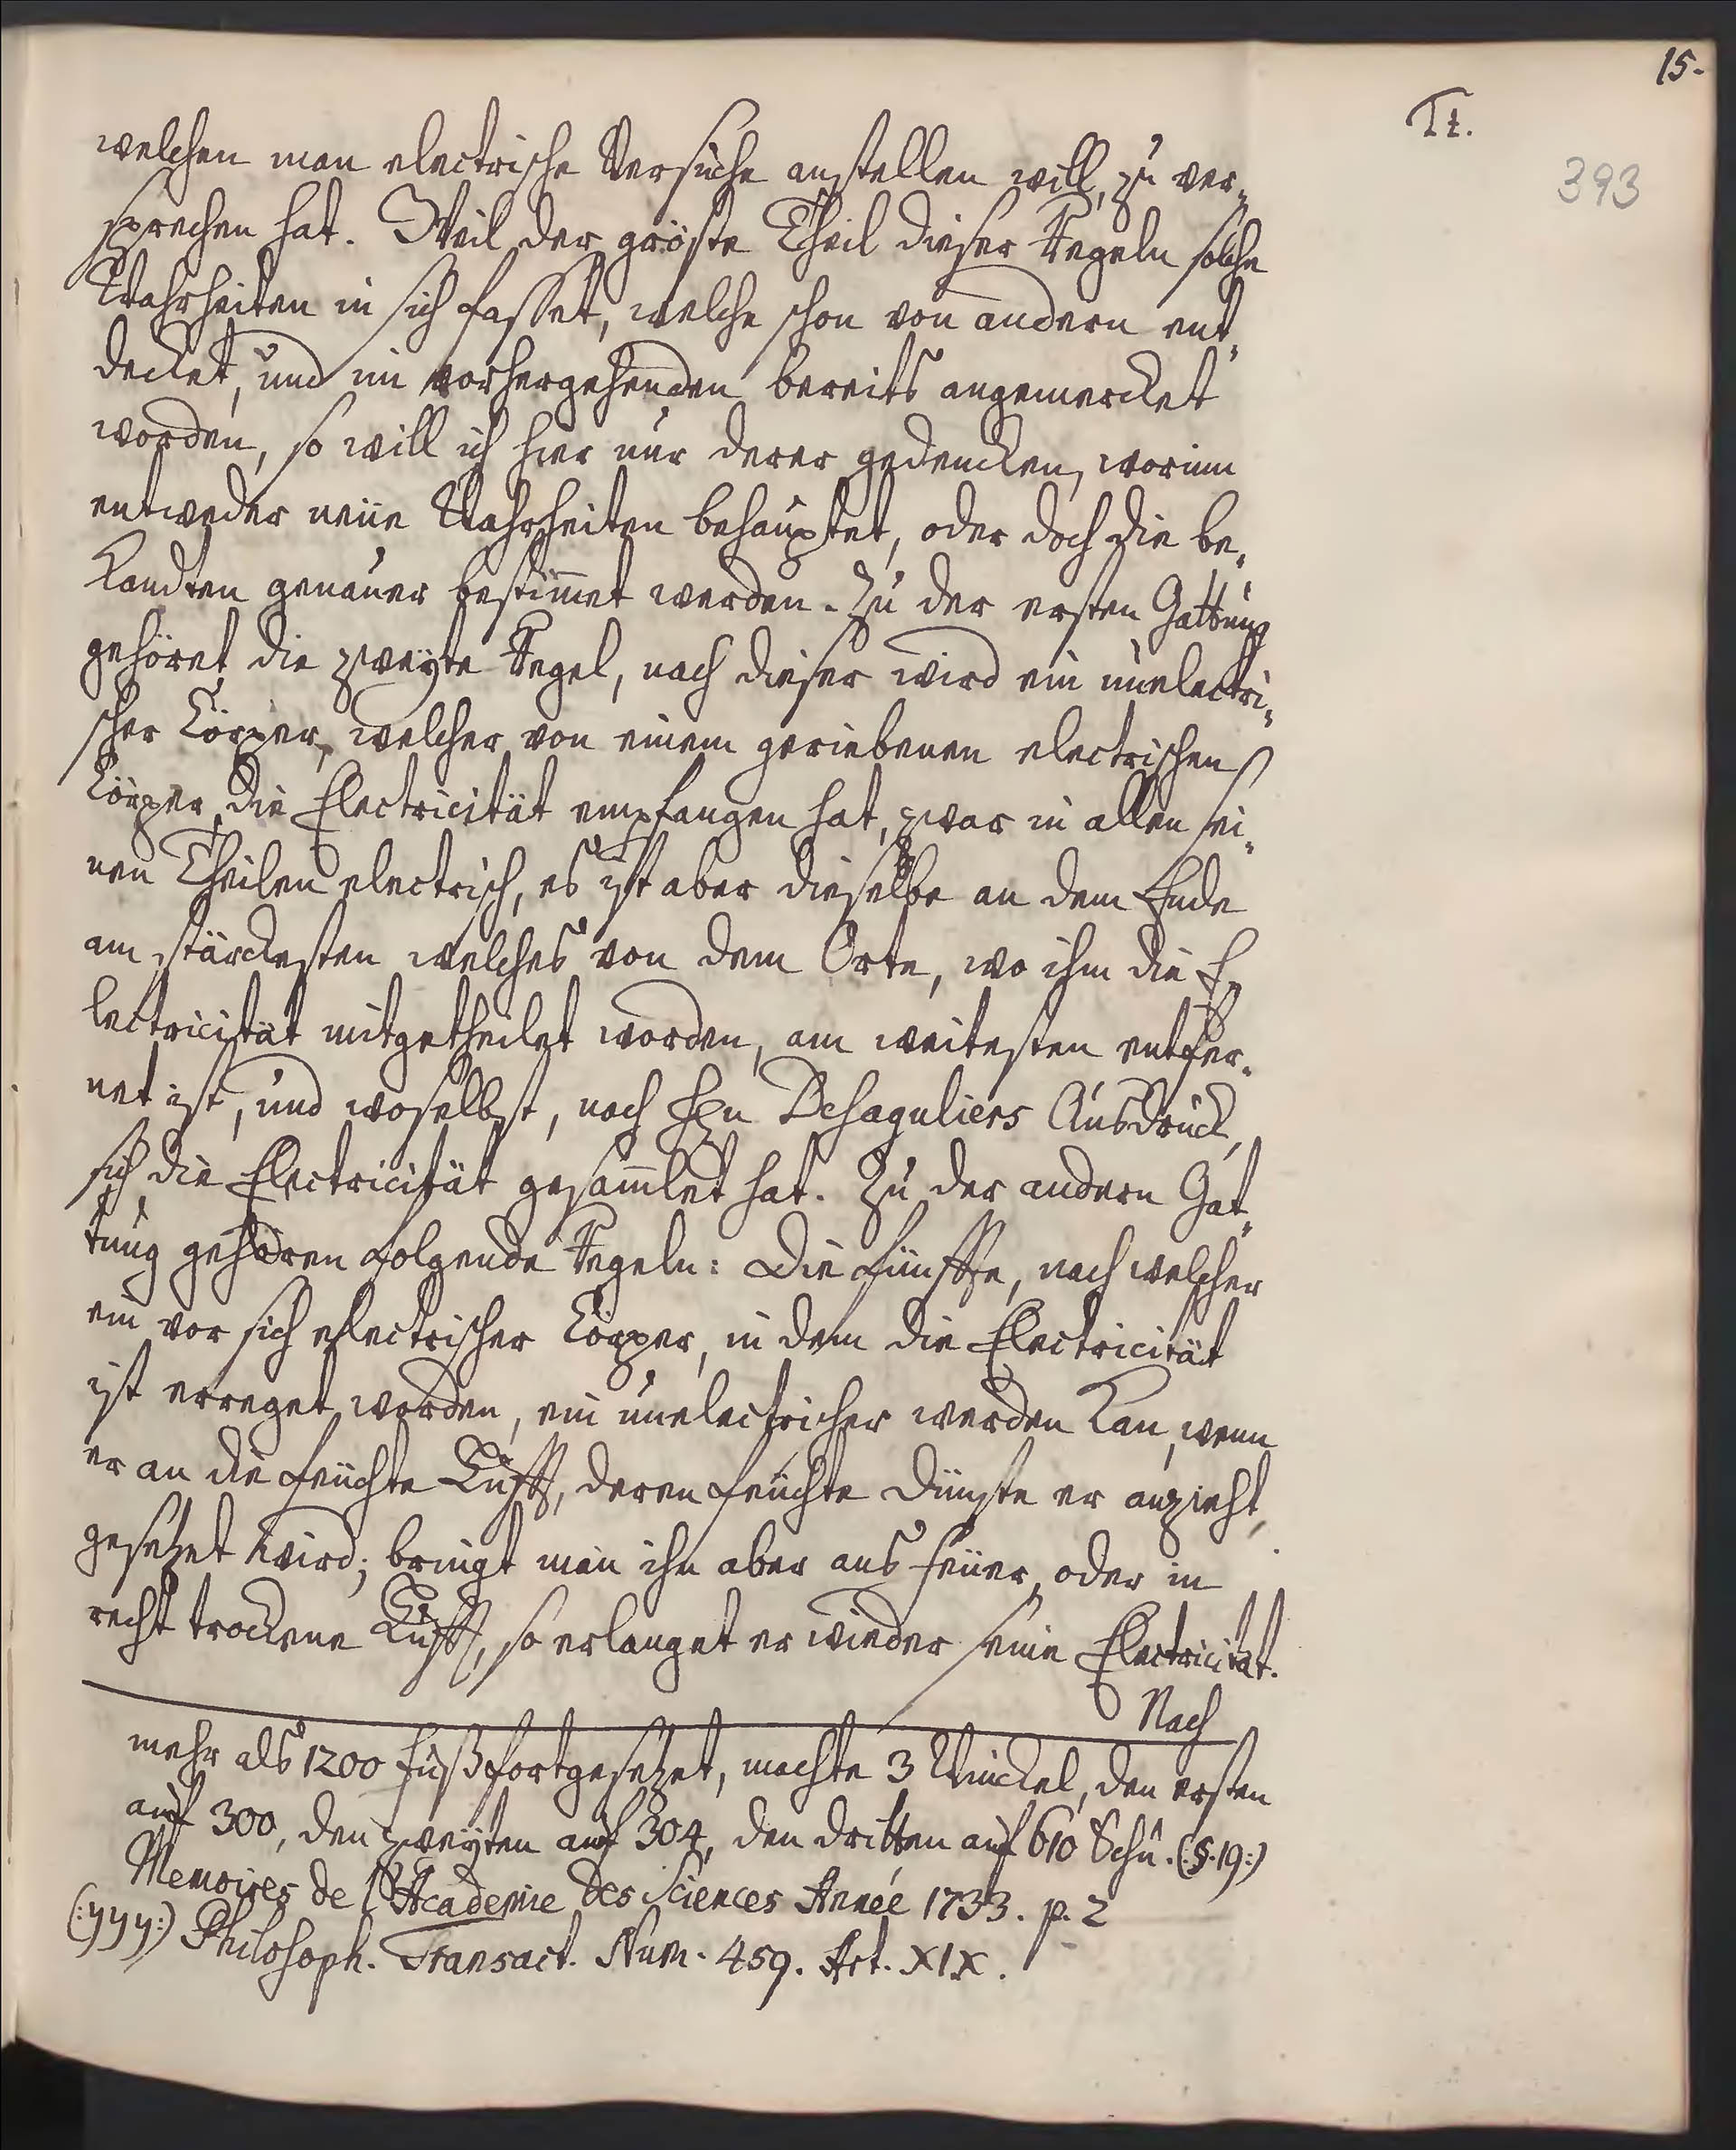 15.
Tt.
393
welchen man electrische Versuche anstellen will, zu ver-
sprechen hat. Weil der gröste Theil dieser Regeln solche
Wahrheiten in sich fasset, welche schon von andern ent-
decket, und im vorhergehenden bereits angemercket
worden, so will ich hier nur derer gedencken, worinn
entweder neüe Wahrheiten behauptet, oder doch die be-
kandten genauer bestim̅et werden. Zu der ersten Gattung
gehöret die zweyte Regel, nach dieser wird ein unelectri-
scher Körper, welcher von einem geriebenen electrischen
Körper die Electricität empfangen hat, zwar in allen sei-
nen Theilen electrisch, es ist aber dieselbe an dem Ende
am stärckesten welches von dem Orte, wo ihm die E-
lectricität mitgetheilet worden, am weitesten entfer-
net ist, und woselbst, nach Hrn Dehaguliers Ausdruck,
sich die Electricität gesam̅let hat. Zu der andern Gat-
tung gehören folgende Regeln: Die fünffte, nach welcher
ein vor sich electrischer Körper, in dem die Electricität
ist erreget worden, ein unelectricher werden kan, wenn
er an die feüchte Lufft, deren feüchte Dünste er anzieht,
gesetzet wird; bringt man ihn aber ans feüer, oder in
recht trockene Lufft, so erlanget er wieder seine Electricität.
Nach
mehr als 1200 fuß fortgesetzet, machte 3 Winckel, den ersten
auf 300, den zweyten auf 304, den dritten auf 610 Schu. (:§.19:)
Memoires de l'Academie des Sciences Année 1733. p. 2
(:yyy:) Philosoph. Transact. Num. 459. Art. XIX.